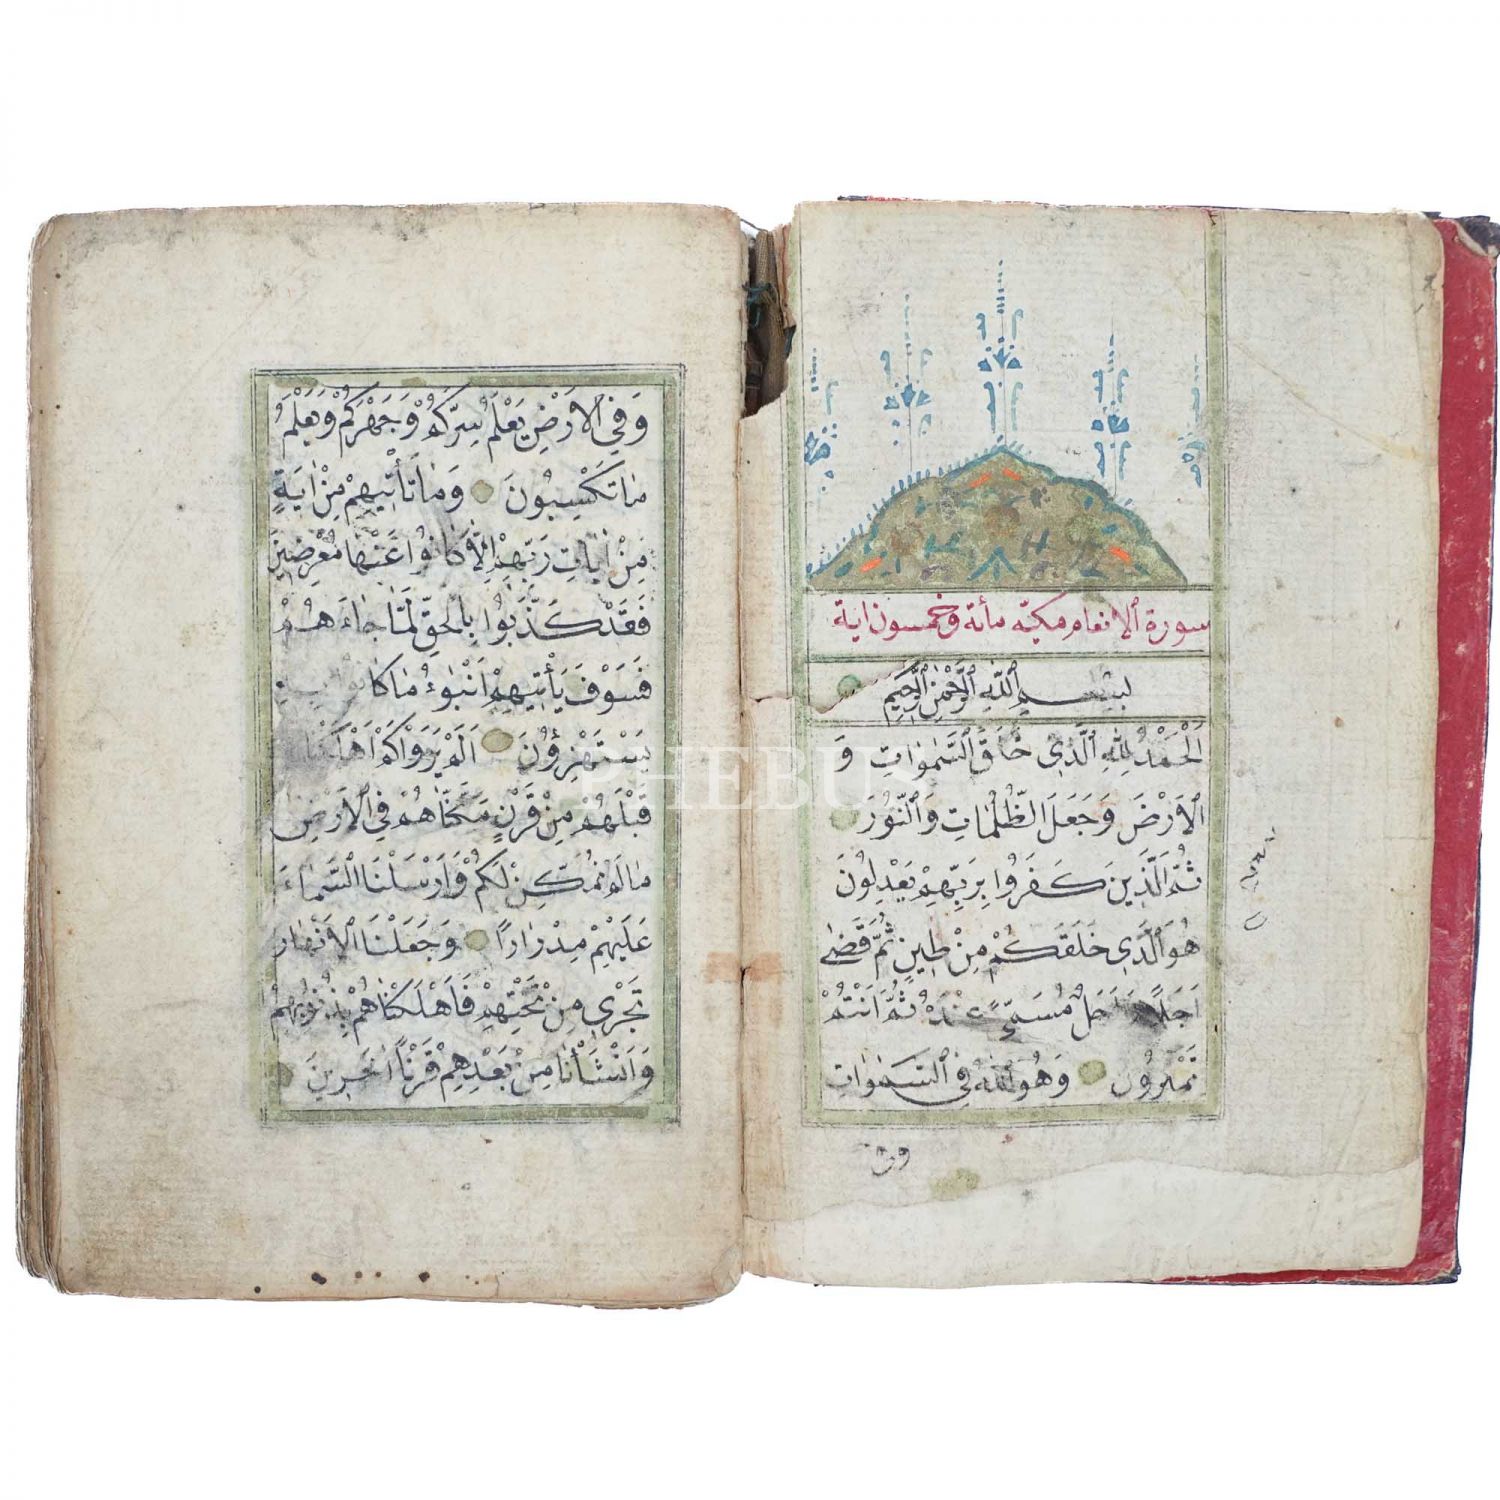 سورة الانعام مكيّة مأة وخمسون اية
بسم الله الرحمن الرحيم
اَلْحَمْدُ لِلّٰهِ الَّذِي خَلَقَ السَّمٰوَاتِ وَ
الْاَرْضَ وَجَعَلَ الظُّلُمَاتِ وَالنُّورَ
ثُمَّ الَّذِينَ كَفَرُوا بِرَبِّهِمْ يَعْدِلُونَ
هُوَ الَّذِي خَلَقَكُمْ مِنْ طِينٍ ثُمَّ قَضٰى
اَجَلًا وَاَجَلٌ مُسَمًّى عِنْدَهُ ثُمَّ اَنْتُمْ
تَمْتَرُونَ وَهُوَ اللّٰهُ فِي السَّمٰوَاتِ
وفي
وَفِي الْاَرْضِ يَعْلَمُ سِرَّكُمْ وَجَهْرَكُمْ وَيَعْلَمُ
مَا تَكْسِبُونَ وَمَا تَأْتِيهِمْ مِنْ اٰيَةٍ
مِنْ اٰيَاتِ رَبِّهِمْ اِلَّا كَانُوا عَنْهَا مُعْرِضِينَ
فَقَدْ كَذَّبُوا بِالْحَقِّ لَمَّا جَاءَهُمْ
فَسَوْفَ يَأْتِيهِمْ اَنْبٰؤُا مَا كَانُوا بِهِ
يَسْتَهْزِؤُنَ اَلَمْ يَرَوْا كَمْ اَهْلَكْنَا
قَبْلَهُمْ مِنْ قَرْنٍ مَكَّنَّاهُمْ فِي الْاَرْضِ
مَا لَمْ نُمَكِّنْ لَكُمْ وَاَرْسَلْنَا السَّمَاءَ
عَلَيْهِمْ مِدْرَارًا وَجَعَلْنَا الْاَنْهَارَ
تَجْرِي مِنْ تَحْتِهِمْ فَاَهْلَكْنَاهُمْ بِذُنُوبِهِمْ
وَاَنْشَأْنَا مِنْ بَعْدِهِمْ قَرْنًا اٰخَرِينَ
PHEBUS